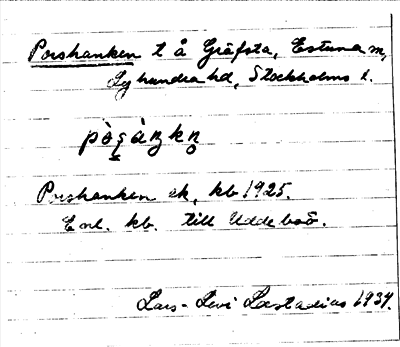 Porshanken t å Gräfsta, Estuna sn,
Lyhundra hd, Stockholms l.
pòşàŋkņ
Porshanken ek, kb 1925.
Enl. kb. till Uddeboö.
Lars-Levi Læstadius 1934.